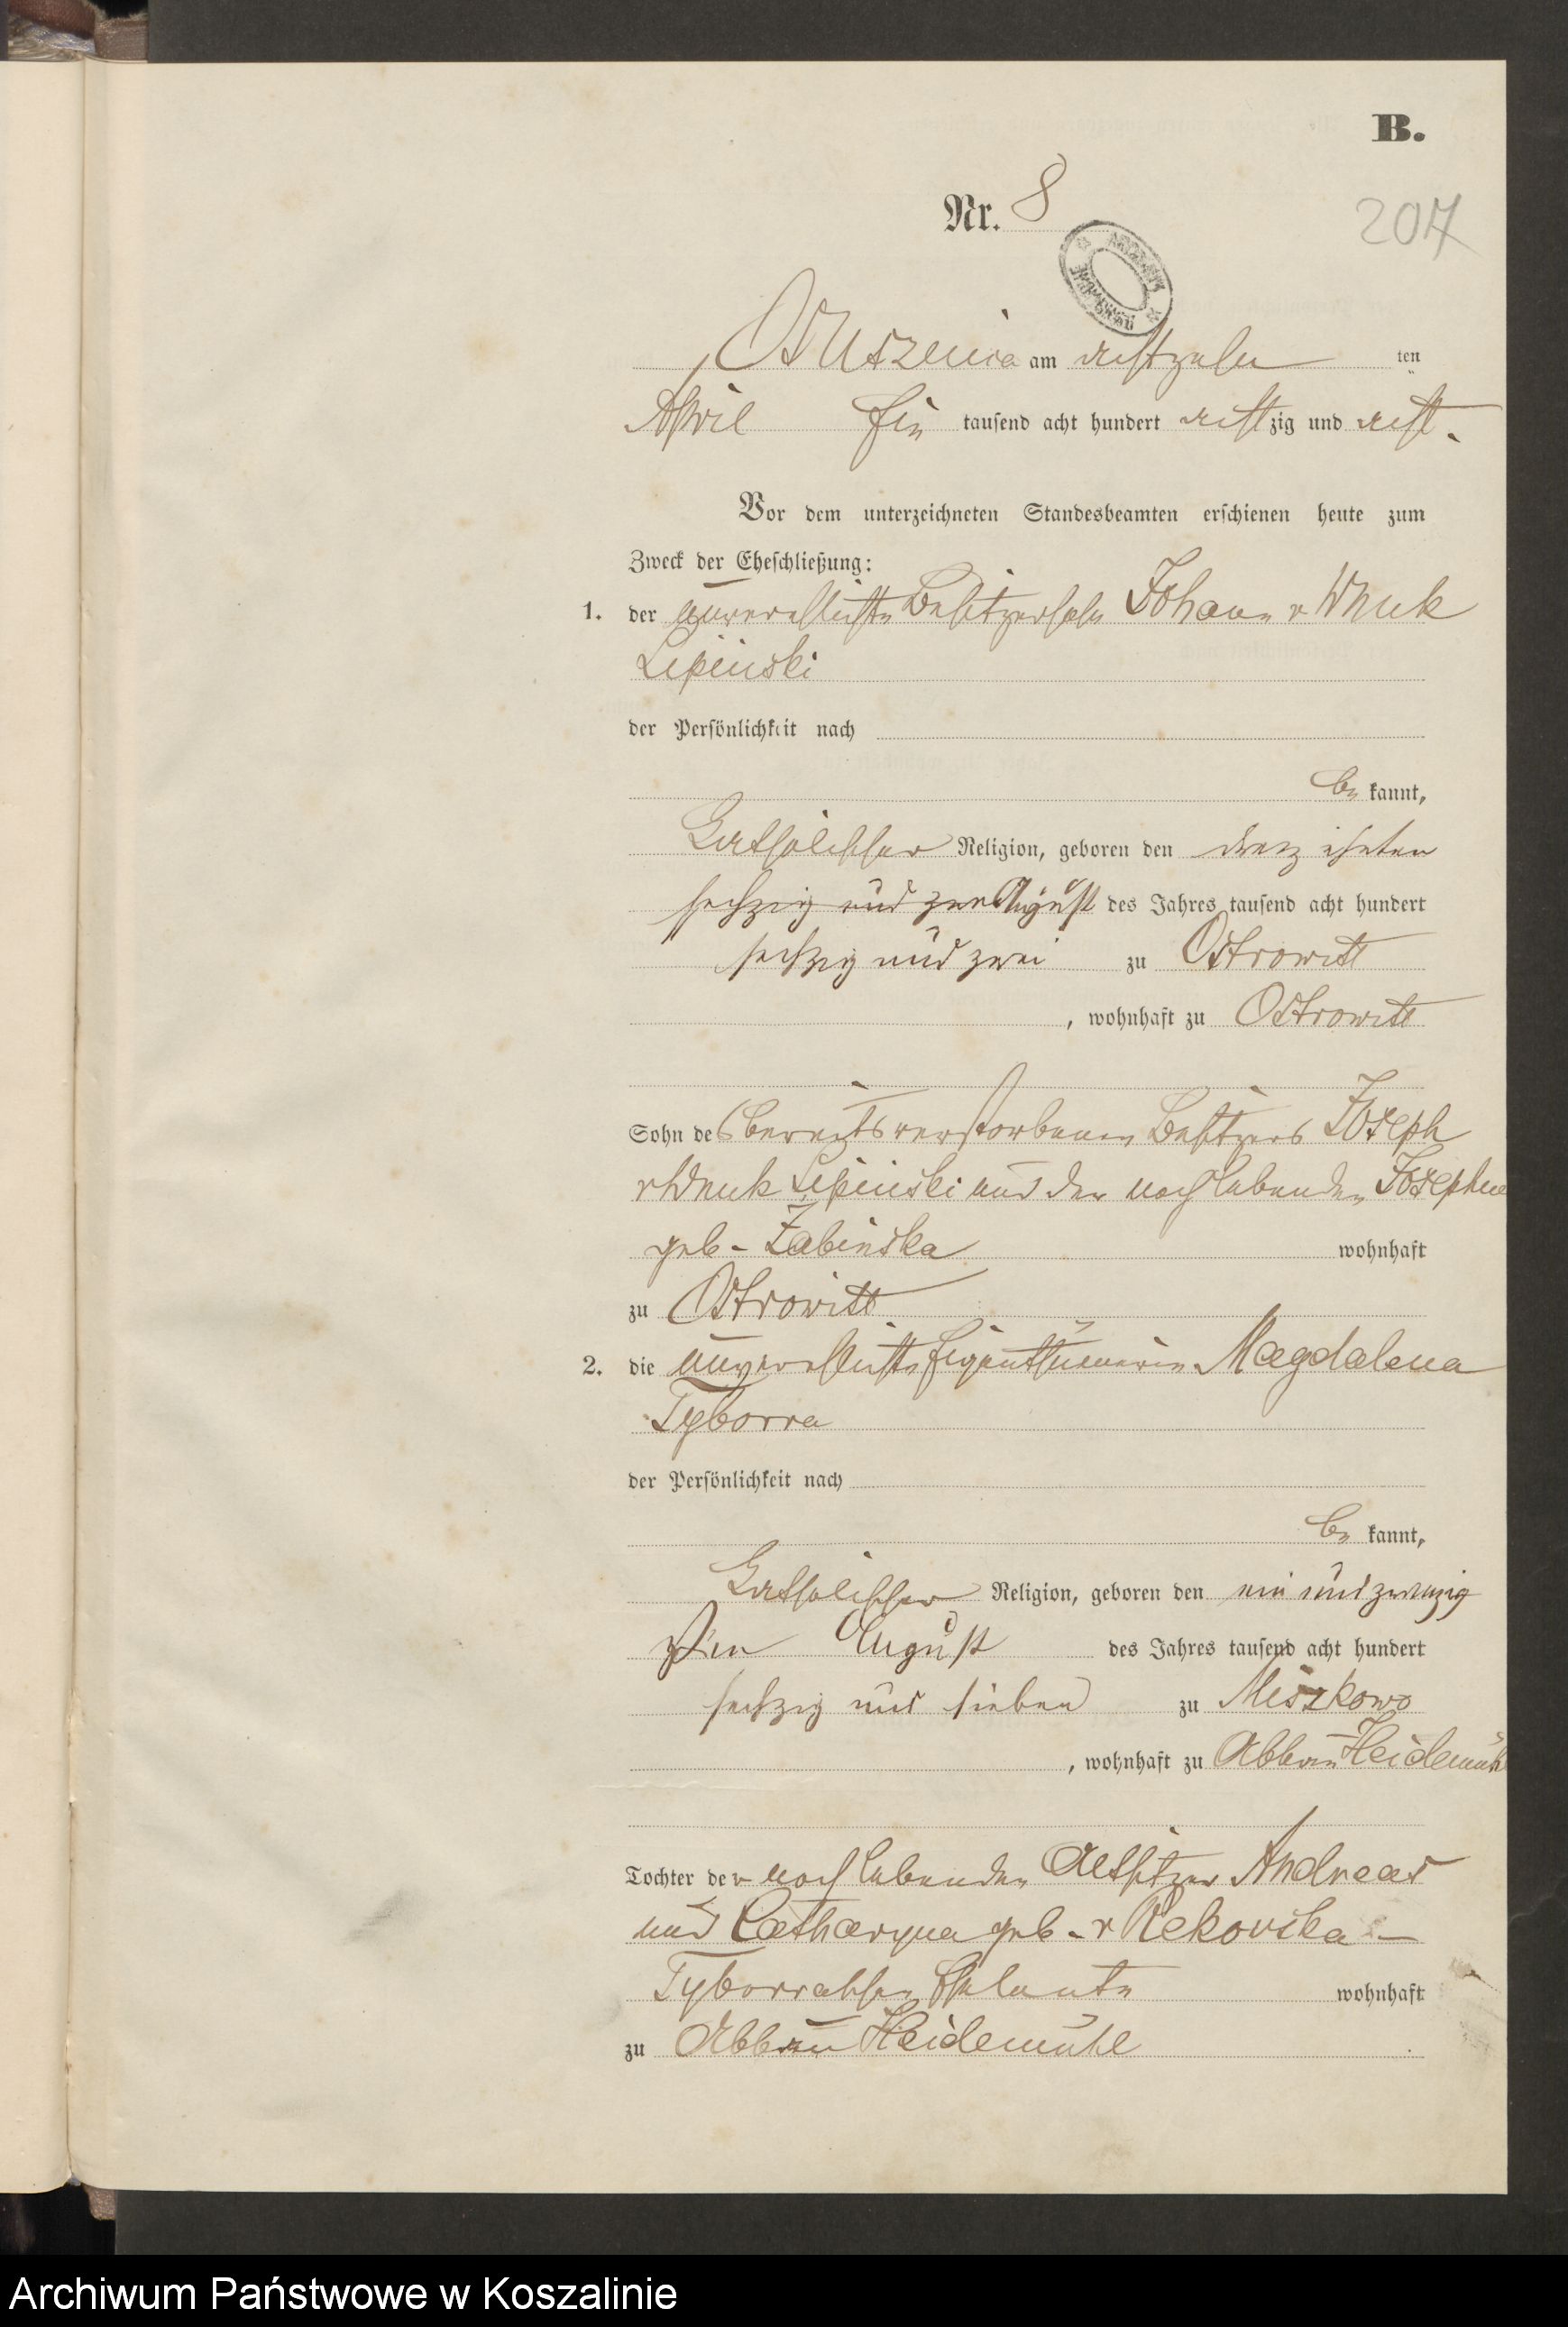 B.
Nr. 8
207
Ossuszenica am achtzehn ten
April Ein tausend acht hundert achtzig und acht.
Vor dem unterzeichneten Standesbeamten erschienen heute zum
Zweck der Eheschließung:
1. der unverehlichte Besitzersohn Johann v Wnuk
Lipinski
der Persönlichkeit nach
be kannt,
Katholischer Religion, geboren den dreizehnten
sechzig und zwe August des Jahres tausend acht hundert
sechzig und zwei zu Ostrowitt
, wohnhaft zu Ostrowitt
Sohn des bereits verstorbenen Besitzers Joseph
v Wnuk Lipinski und der noch lebenden Josephine
geb. Zabinska wohnhaft
zu Ostrowitt
2. die unverehlichte Eigenthümerin Magdalena
Tyborra
der Persönlichkeit nach
be kannt,
Katholischer Religion, geboren den ein und zwanzig
sten August des Jahres tausend acht hundert
sechzig und sieben zu Miszkowo
, wohnhaft zu Abbau Heidemühl
Tochter der noch lebenden Altsitzer Andreas
und Catharyna geb. v Rekovska
Tyborraschen Eheleute wohnhaft
zu Abbau Heidemühl
Archiwum Państwowe w Koszalinie